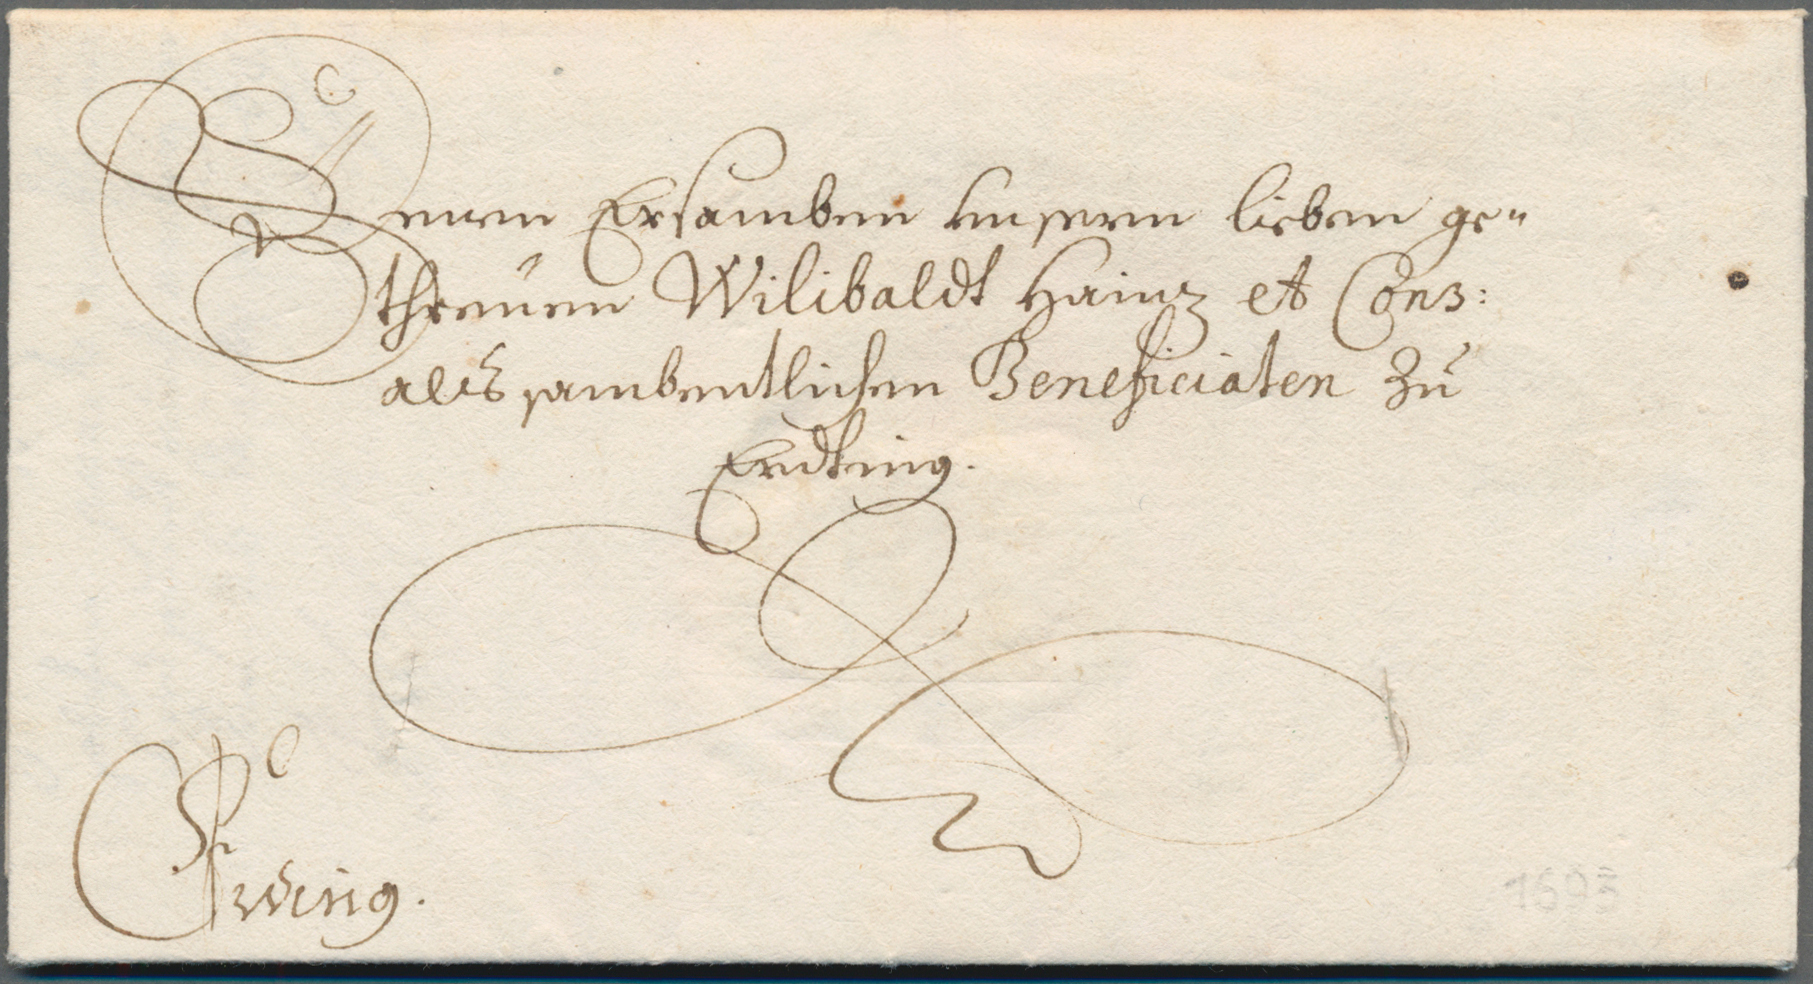 Denen Ersamben unsern lieben ge-
threuen Wilibaldt Hainz et Cons:
als sambentlichen Beneficiaten zu
Erdting.
Frising.
1693